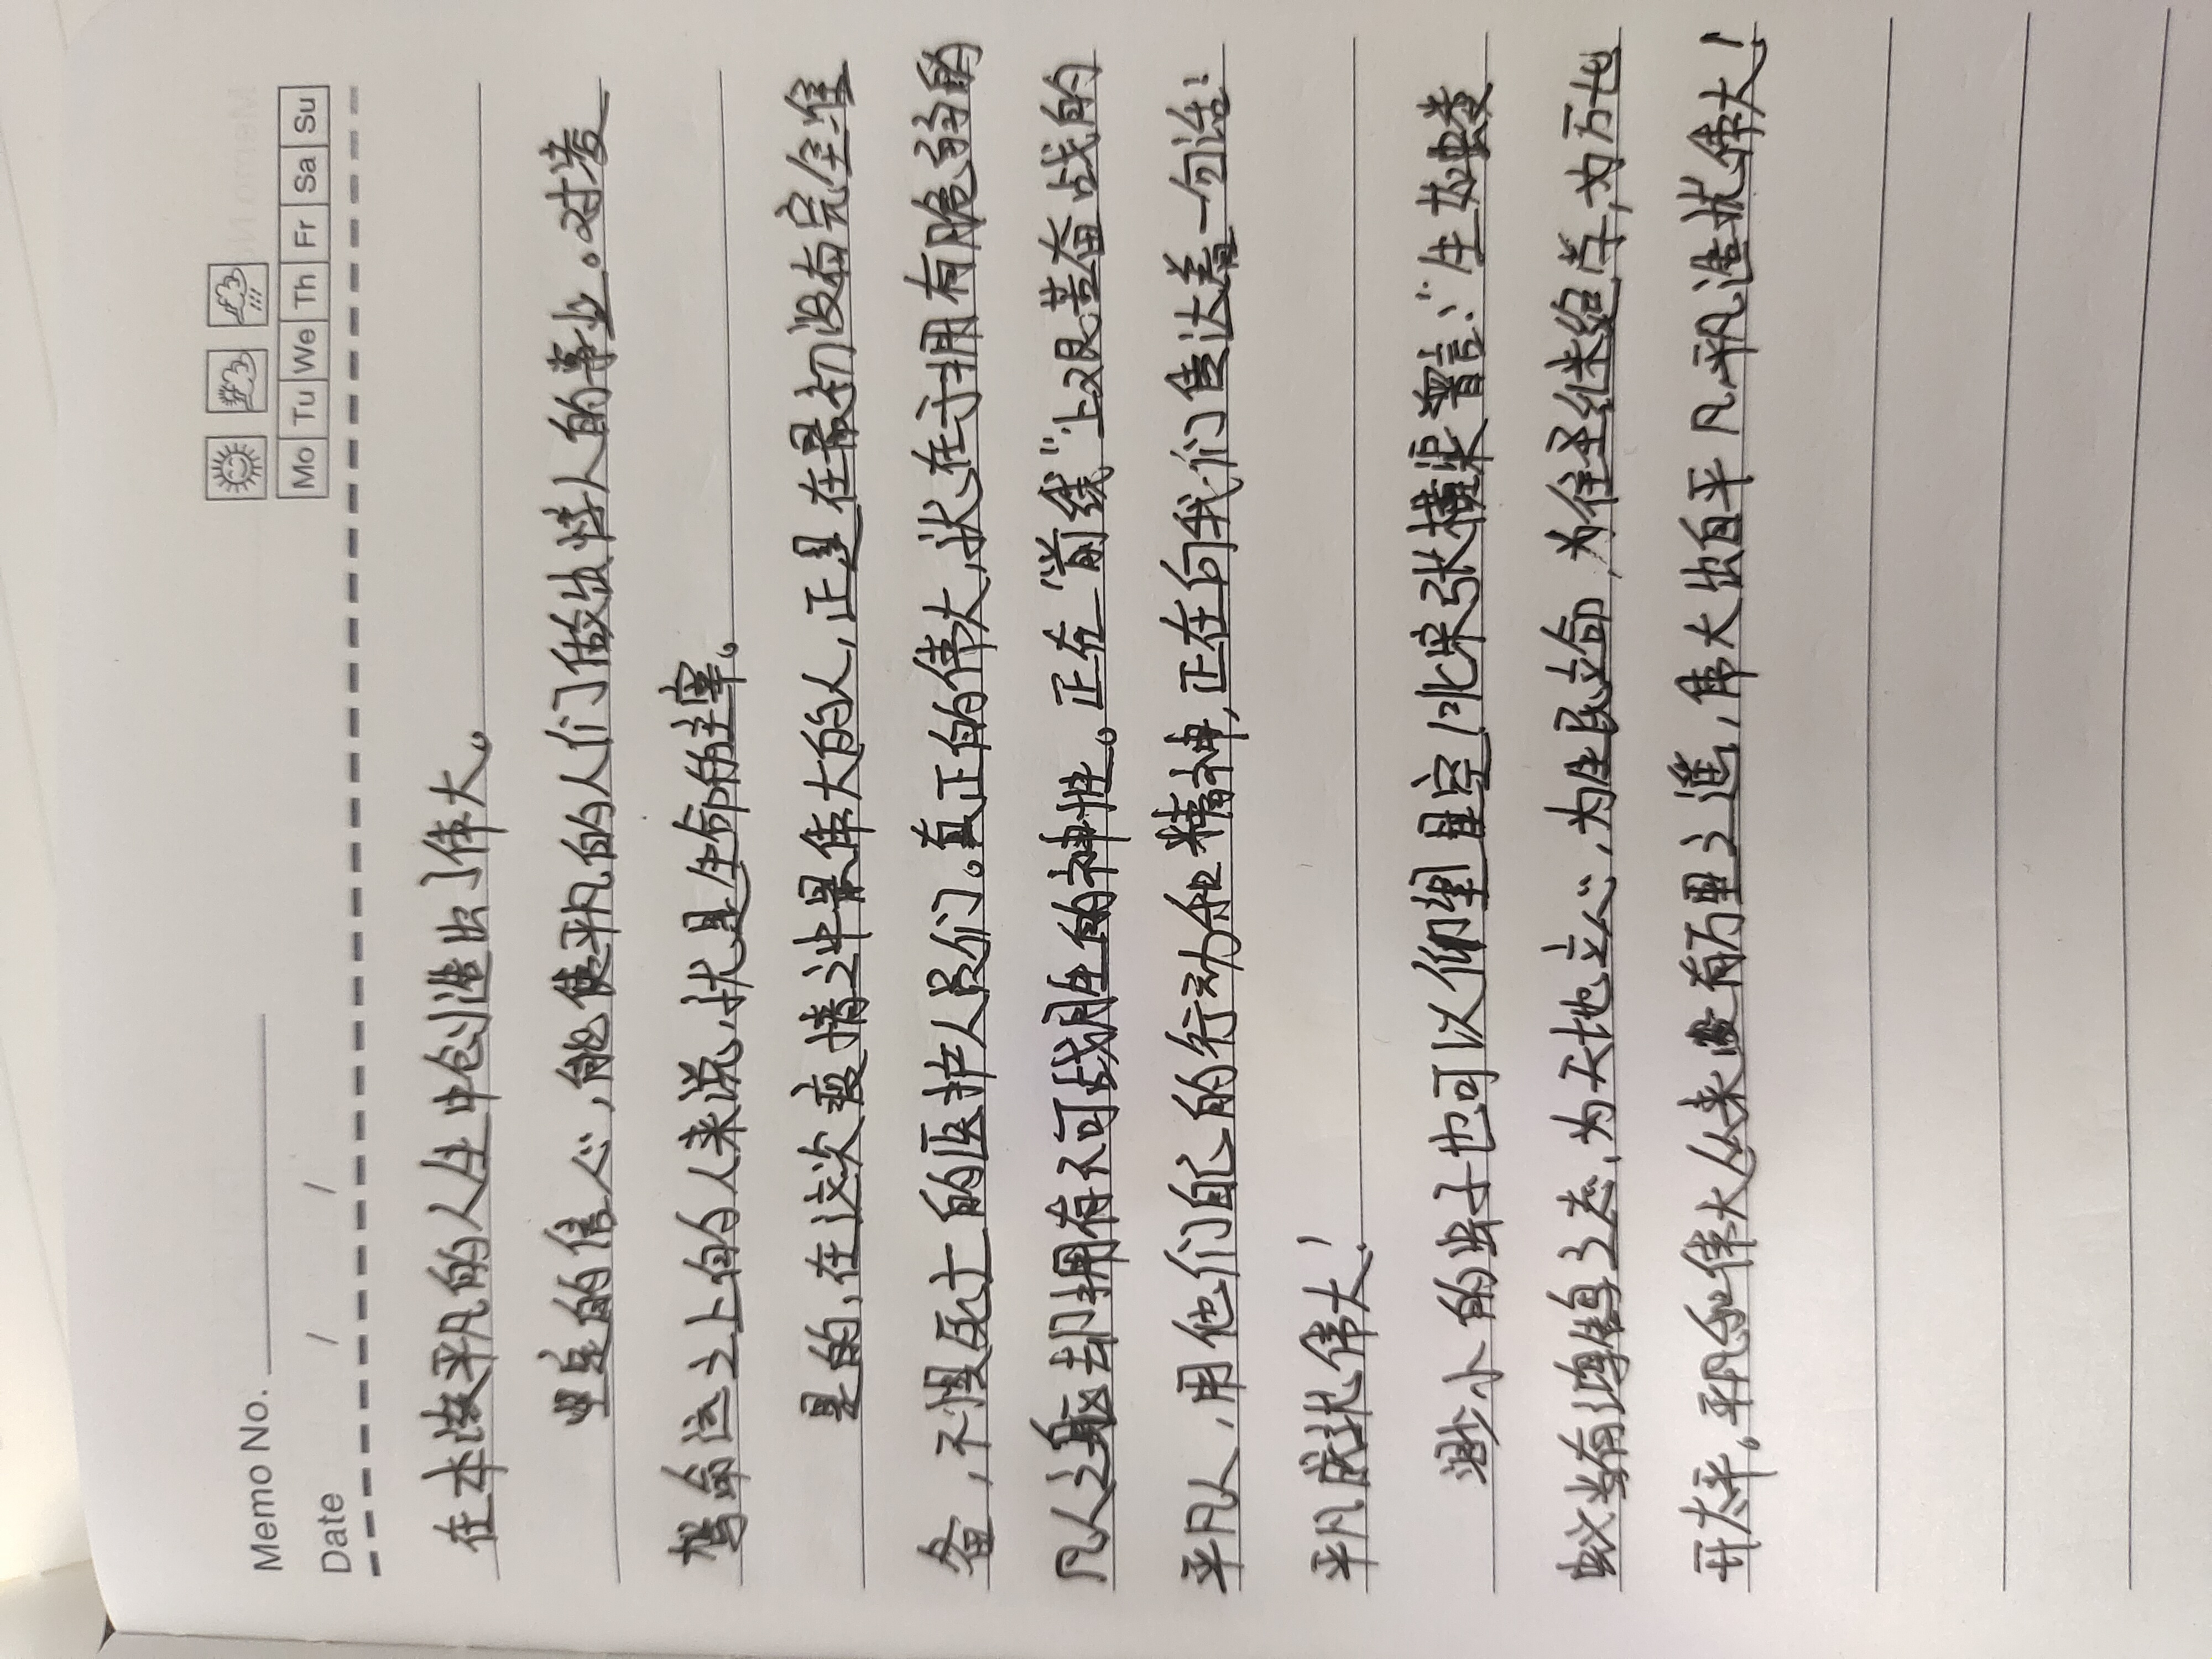 Memo No.
Mo Tu We Th Fr Sa Su
Date / /
在本该平凡的人生中创造出了伟大。
坚定的信心,能使平凡的人们做出惊人的事业。对着
驾俞这之上的人来说,扰是生命的主宰。
是的,在这次疫情之中最伟大的人,正是在最初没有完全准
备,不惧死亡的医护人员们。真正的伟大,状在于拥有脆弱的
凡人之躯却拥有不可战胜的神性。正在“前线”上艰苦奋战的
平凡人,用他们自己的行动和精神,正在向我们传达着一句话:
平凡成就伟大!
渺小的虫子也可以仰望星空,北宋张横渠曾言:“生如蝼
蚁当有鸿鹄之志,为天地立心,为生民立命,为往圣继绝学,为万世
开太平。平凡和伟大从来没有万里之遥,伟大出自平凡,平凡造就伟大!